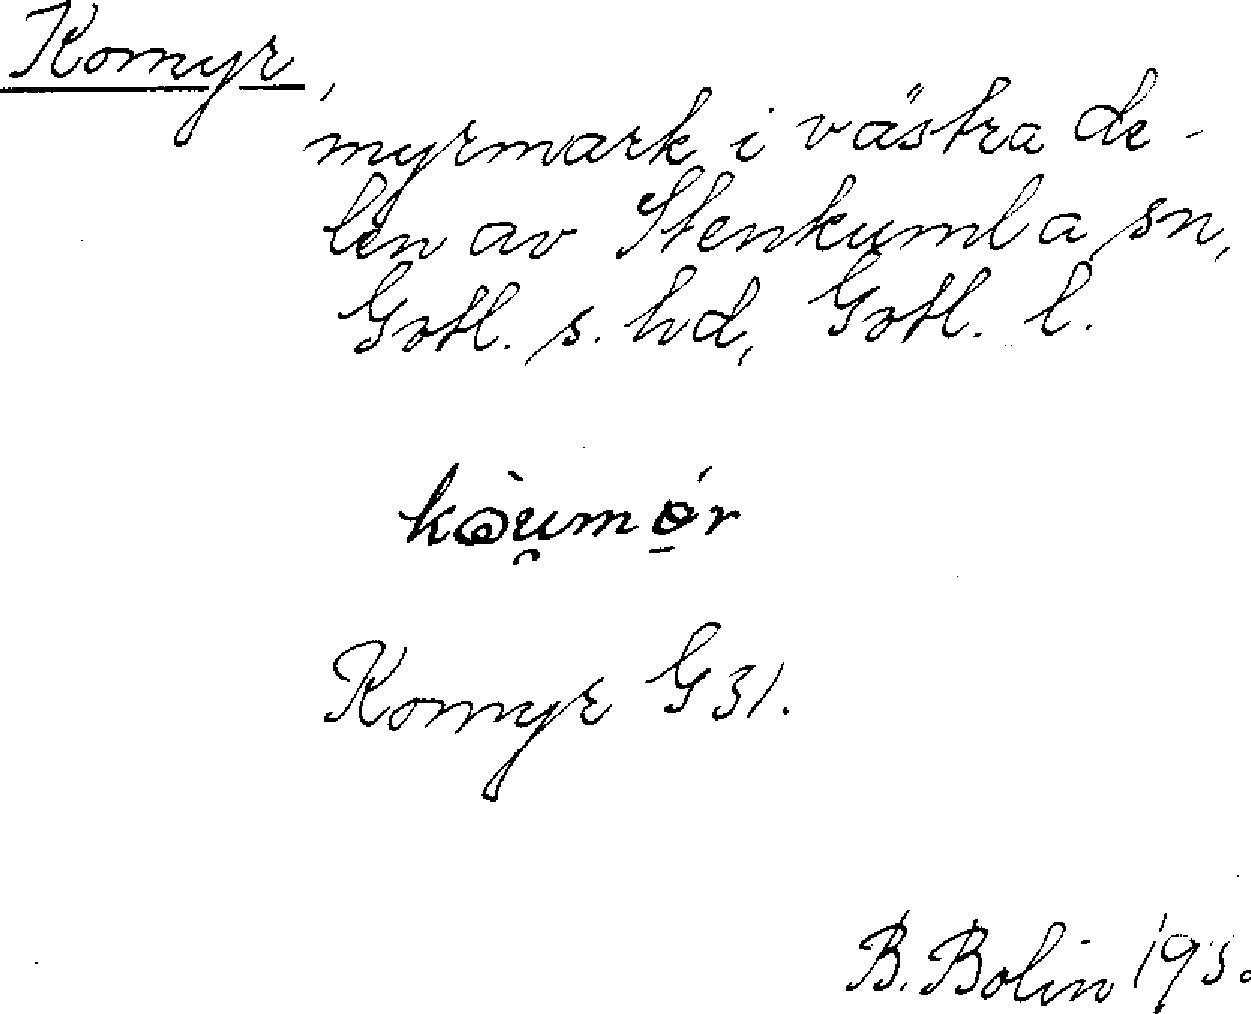 Komyr,
myrmark i västra de-
len av Stenkumla sn,
Gotl. s. hd, Gotl. l.
Komyr G 31.
B. Bolin